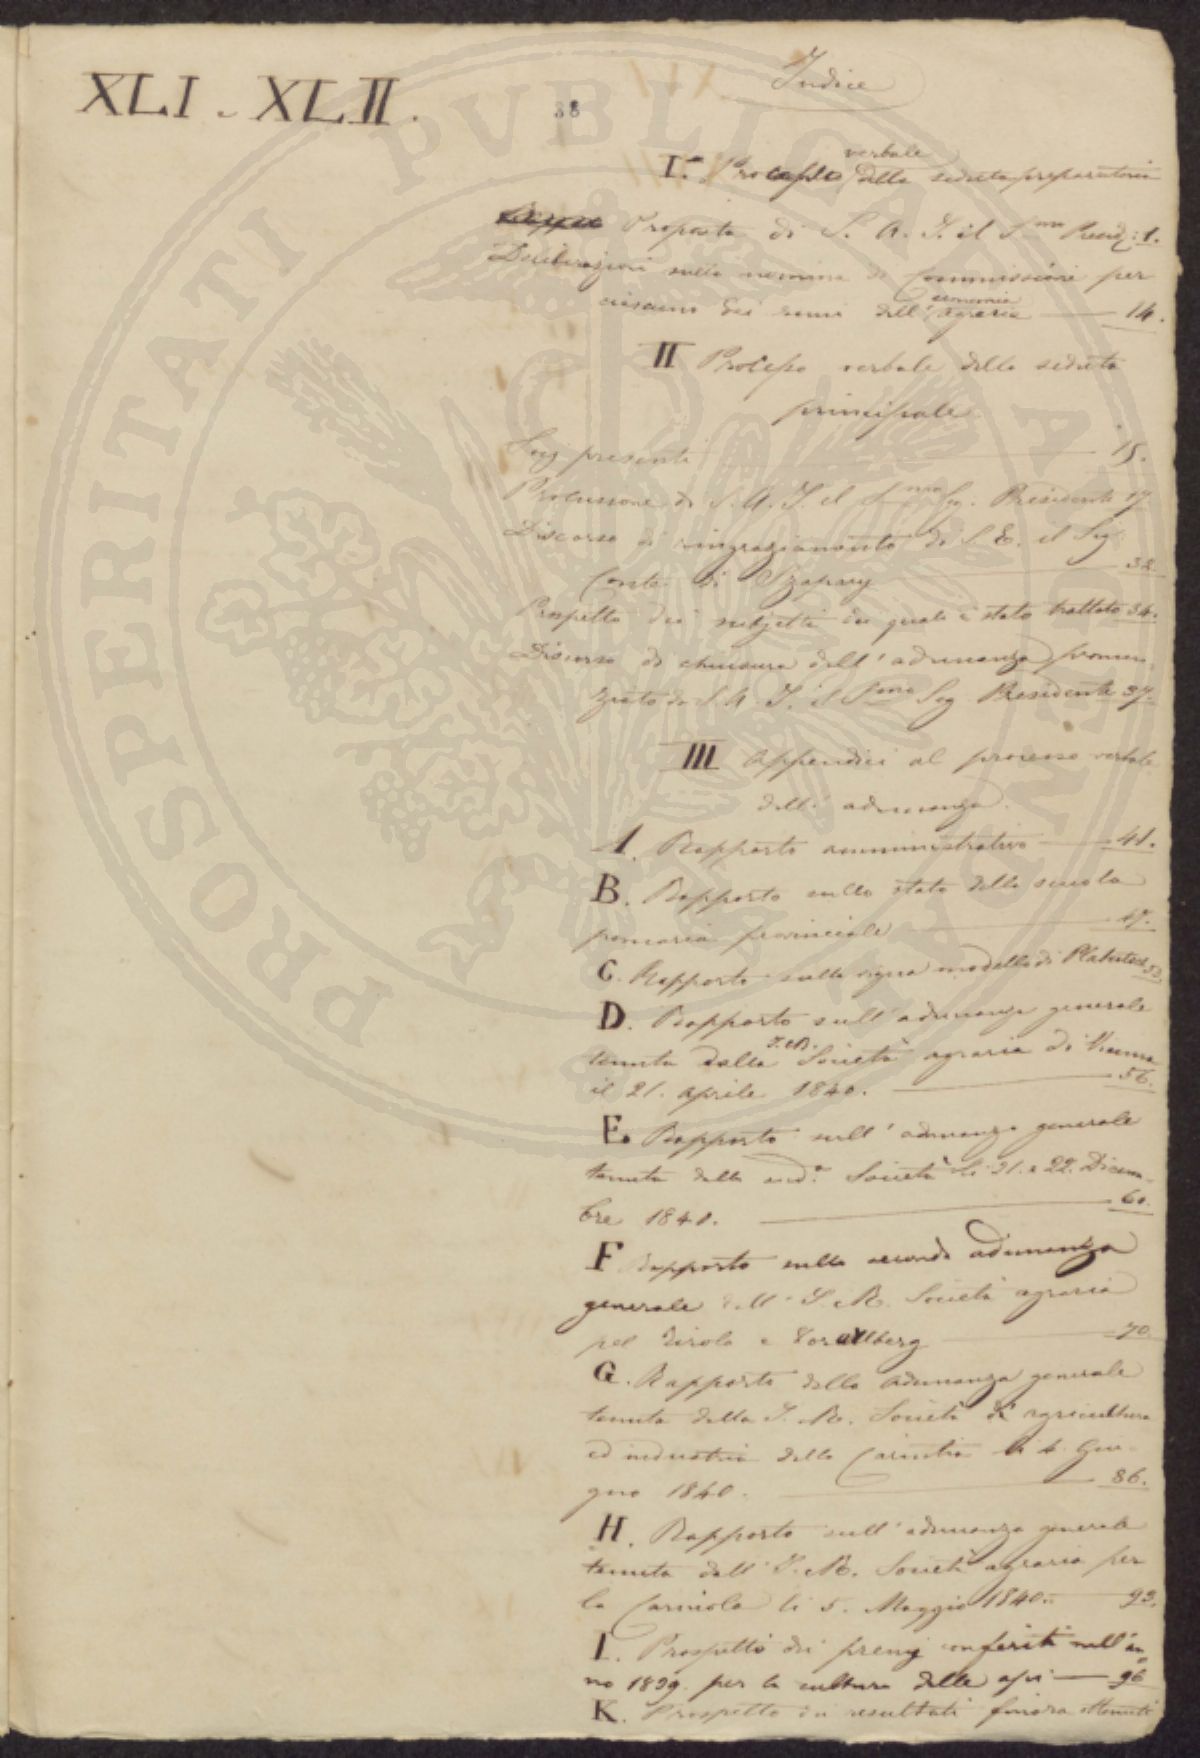 Indice
XLI - XLII.
38
I.° Processo verbale della seduta preparatoria
Proposta di S. A. I. il S.mo Presid.: 1.
Deliberazioni sulla nomina di Commissioni per
ciascuno dei rami dell' economia agraria — 14.
II Processo verbale della seduta
principale
Socj presenti — 15.
Prolusione di S. A. I. il S.mo Sig. Presidente 17.
Discorso di ringraziamento di S. E. il Sig.
Conte di Szapary — 32.
Prospetto dei subjetti dei quali è stato trattato 34.
Discorso di chiusura dell' adunanza pronun-
ziato da S. A. I. il S.mo Sig. Presidente 37.
III Appendici al processo verbale
dell' adunanza.
A. Rapporto amministrativo — 41.
B. Rapporto sullo stato della scuola
pomaria provinciale — 47.
C. Rapporto sulla vigna modello di
D. Rapporto sull' adunanza generale
tenuta dalla I. R. Società agraria di Vienna
il 21. aprile 1840. — 56.
E. Rapporto sull' adunanza generale
tenuta dalla sud.a Società li 21. e 22. Dicem-
bre 1840. — 60.
F Rapporto sulla seconda adunanza
generale dell' I. R. Società agraria
pel Tirolo e Vorarlberg — 70.
G. Rapporto della adunanza generale
tenuta dalla I. R. Società di agricoltura
ed industria della Carintia li 4. Giu-
gno 1840. — 86.
H. Rapporto sull' adunanza generale
tenuta dall' I. R. Società agraria per
la Carniola li 5. Maggio 1840. — 93.
I. Prospetto dei premj conferiti nell' an-
no 1839. per la cultura delle api — 96
K. Prospetto dei resultati finora ottenuti
PROSPERITATI PUBLICAE AUGENDAE